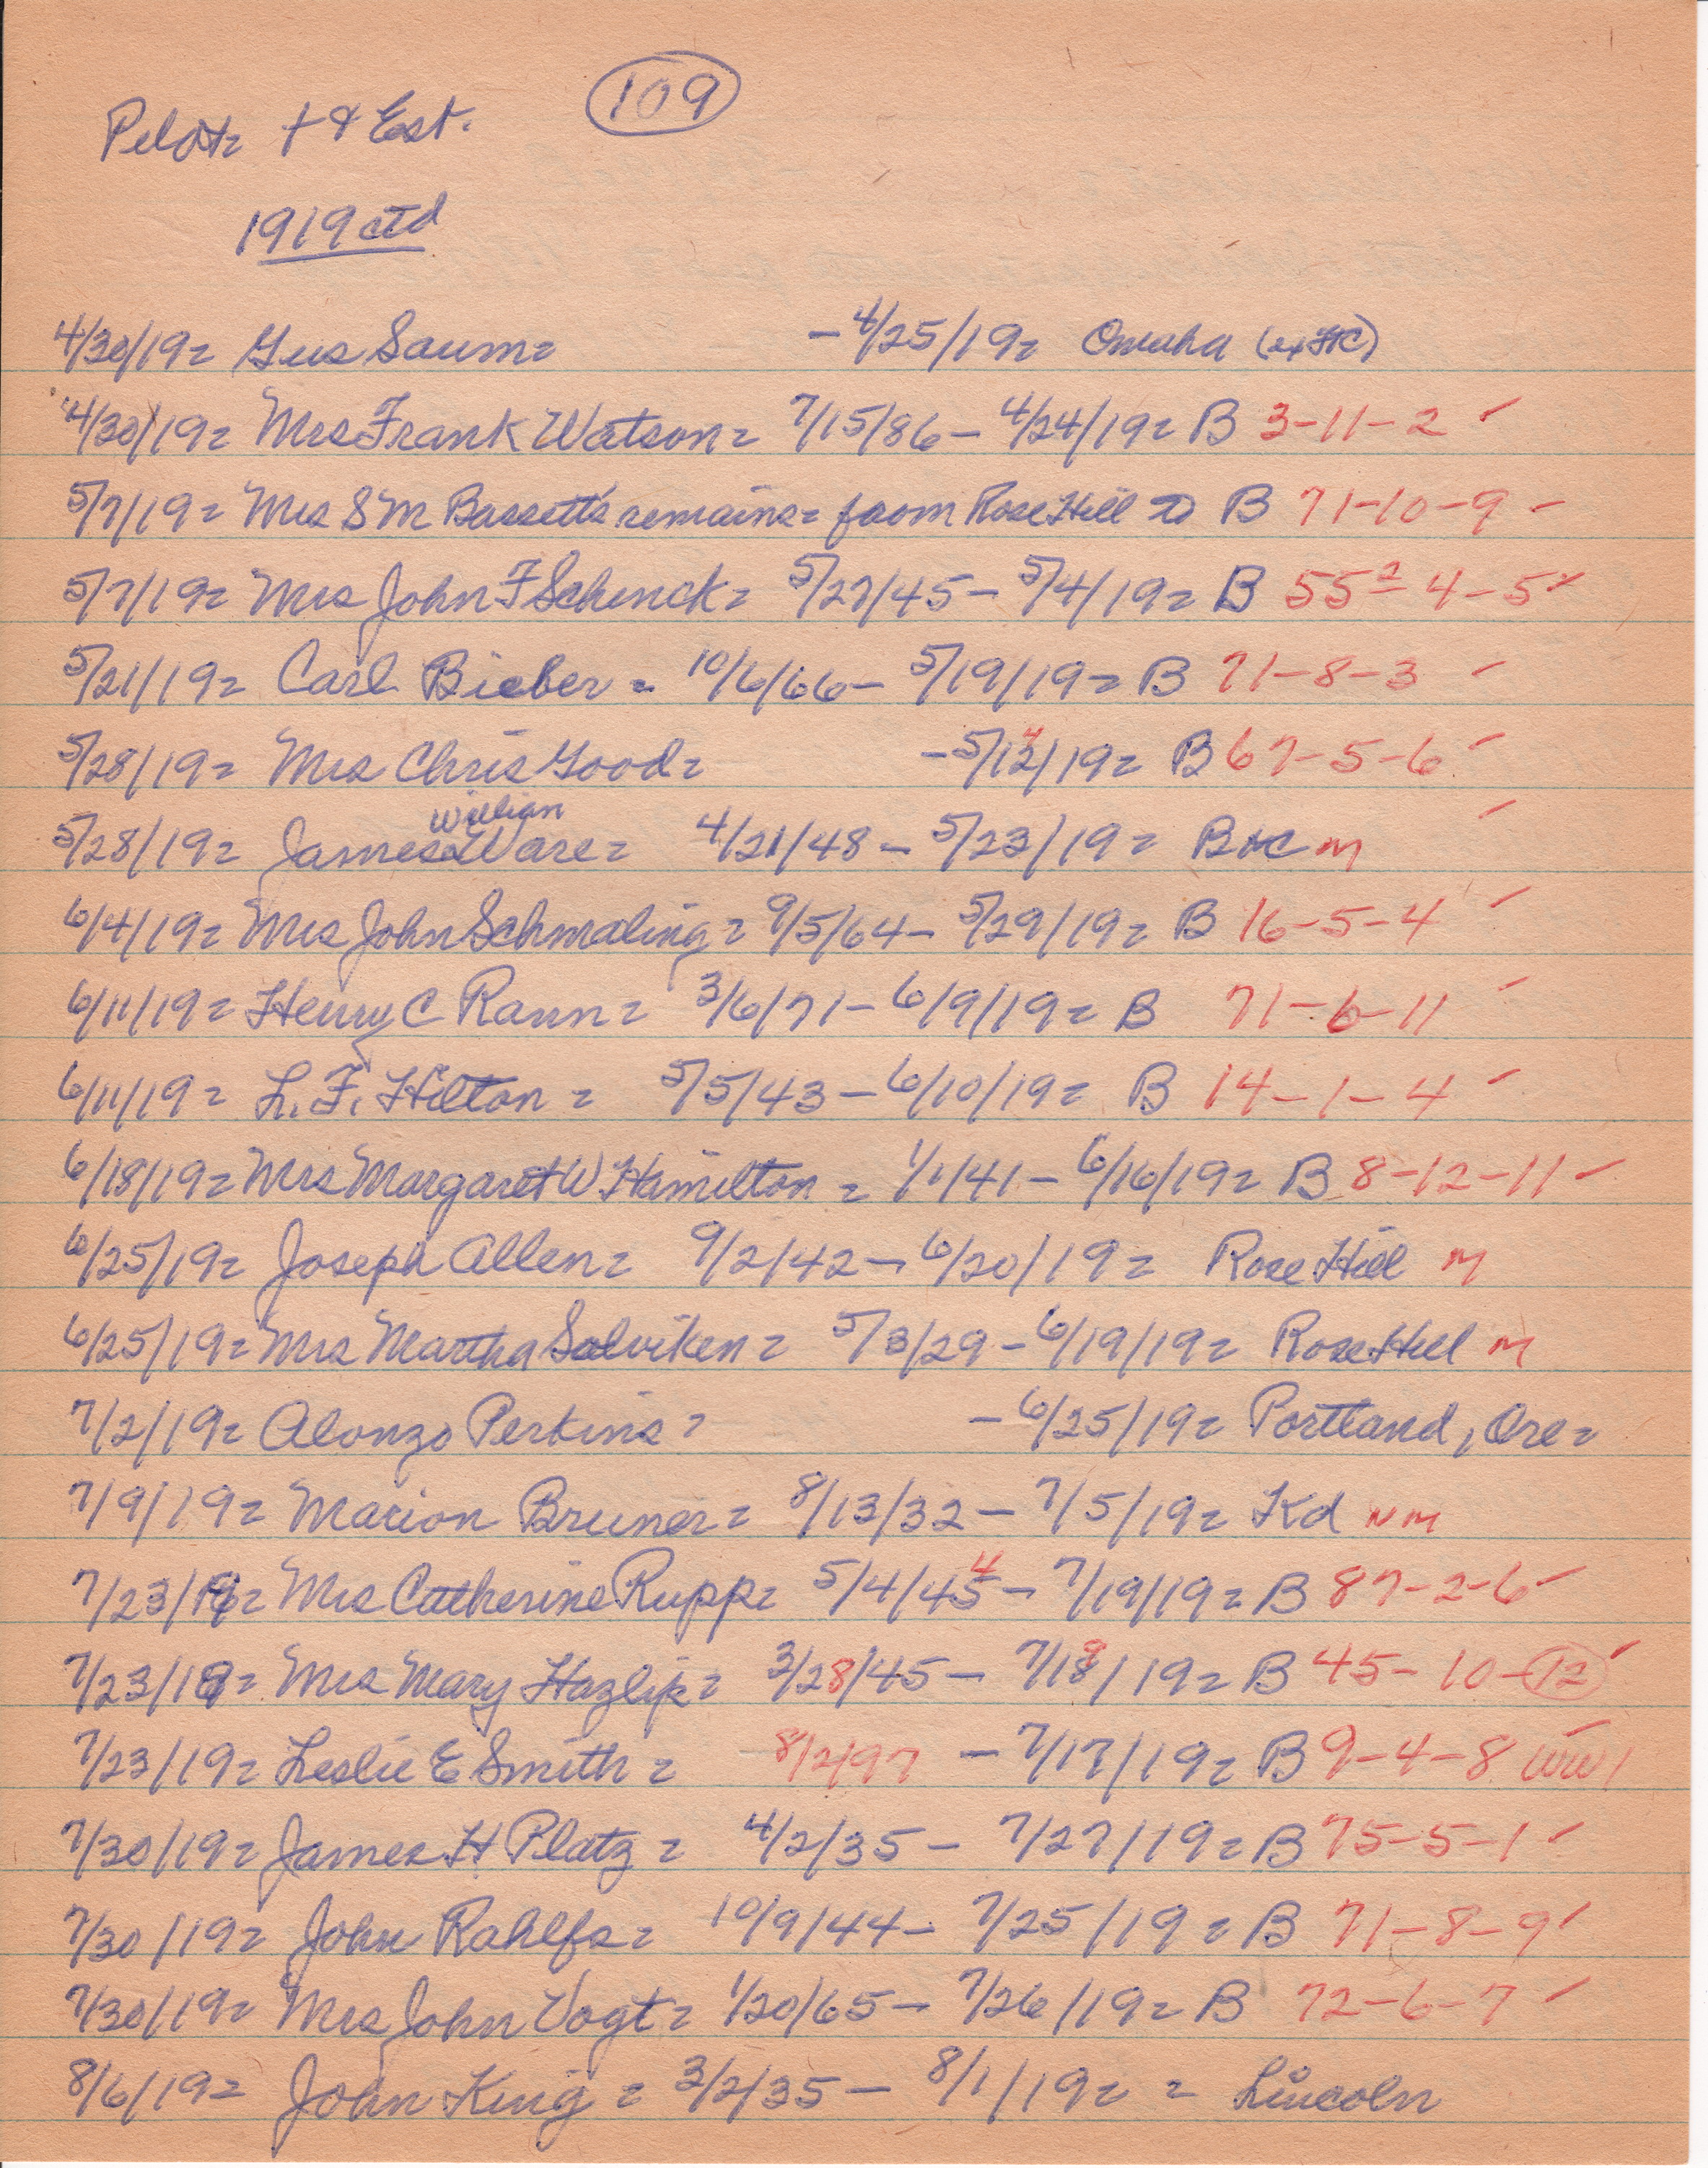 109
Pelotz + & Est.
1919 ctd
4/30/19= Gus Saum= -4/25/19= Omaha (ex HC)
4/30/19= Mrs Frank Watson= 7/15/86- 4/24/19= B 3-11-2 ✓
5/7/19= Mrs S M Bassett's remains= from Rose Hill to B 71-10-9 -
5/7/19= Mrs John F Schenck= 5/27/45- 5/4/19= B 55²-4-5✓
5/21/19= Carl Bieber = 10/6/66- 5/19/19= B 71-8-3 ✓
5/28/19= Mrs Chris Good= -5/12/19= B 67-5-6 ✓
William
5/28/19= James Ware= 4/21/48- 5/23/19= B M ✓
6/4/19= Mrs John Schmaling= 9/5/64- 5/29/19= B 16-5-4 ✓
6/11/19= Henry C Rann= 3/6/71- 6/9/19= B 71-6-11 ✓
6/11/19= L. F. Hilton = 5/5/43- 6/10/19= B 14-1-4 ✓
6/18/19= Mrs Margaret W Hamilton = 1/1/41- 6/16/19= B 8-12-11 ✓
6/25/19= Joseph Allen= 9/2/42- 6/20/19= Rose Hill M
6/25/19= Mrs Martha Solviken= 5/3/29- 6/19/19= Rose Hill M
7/2/19= Alonzo Perkins= -6/25/19= Portland, Ore=
7/9/19= Marion Bruner= 8/13/32- 7/5/19= Kd NM
7/23/19= Mrs Catherine Rupp= 5/4/45 4 - 7/19/19= B 87-2-6 ✓
7/23/19= Mrs Mary Hazlip= 3/28/45- 7/18 9/19= B 45-10-12 ✓
7/23/19= Leslie E Smith= 8/2/97 -7/17/19= B 9-4-8 WW1
7/30/19= James H Platz= 4/2/35- 7/27/19= B 75-5-1 ✓
7/30/19= John Rahlfs= 10/9/44- 7/25/19= B 71-8-9 ✓
7/30/19= Mrs John Vogt= 1/20/65- 7/26/19= B 72-6-7 ✓
8/6/19= John King= 3/2/35- 8/1/19= = Lincoln